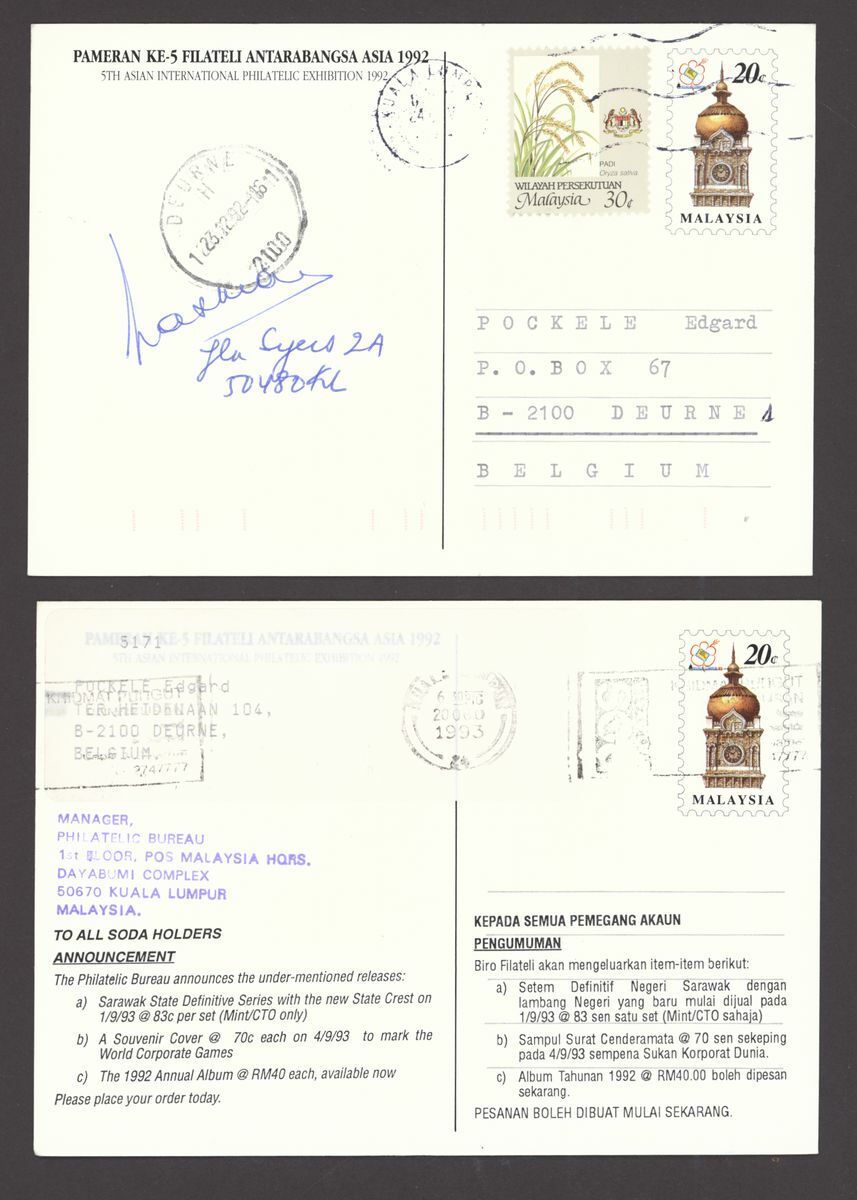 PAMERAN KE-5 FILATELI ANTARABANGSA ASIA 1992
5TH ASIAN INTERNATIONAL PHILATELIC EXHIBITION 1992
KUALA LUMPUR
24
20¢
MALAYSIA
PADI
Oryza sativa
WILAYAH PERSEKUTUAN
Malaysia 30¢
DEURNE
H
23.12.92
2100
Jln Syers 2A
50480 KL
POCKELE Edgard
P.O.BOX 67
B-2100 DEURNE 1
BELGIUM
PAMERAN KE-5 FILATELI ANTARABANGSA ASIA 1992
5TH ASIAN INTERNATIONAL PHILATELIC EXHIBITION 1992
5171
POCKELE Edgard
TER HEIDENAAN 104,
B-2100 DEURNE,
BELGIUM.
KHIDMAT PUNGUT
2747777
1993
20¢
MALAYSIA
MANAGER,
PHILATELIC BUREAU
1st FLOOR, POS MALAYSIA HQRS.
DAYABUMI COMPLEX
50670 KUALA LUMPUR
MALAYSIA.
TO ALL SODA HOLDERS
ANNOUNCEMENT
The Philatelic Bureau announces the under-mentioned releases:
a) Sarawak State Definitive Series with the new State Crest on
1/9/93 @ 83c per set (Mint/CTO only)
b) A Souvenir Cover @ 70c each on 4/9/93 to mark the
World Corporate Games
c) The 1992 Annual Album @ RM40 each, available now
Please place your order today.
KEPADA SEMUA PEMEGANG AKAUN
PENGUMUMAN
Biro Filateli akan mengeluarkan item-item berikut:
a) Setem Definitif Negeri Sarawak dengan
lambang Negeri yang baru mulai dijual pada
1/9/93 @ 83 sen satu set (Mint/CTO sahaja)
b) Sampul Surat Cenderamata @ 70 sen sekeping
pada 4/9/93 sempena Sukan Korporat Dunia.
c) Album Tahunan 1992 @ RM40.00 boleh dipesan
sekarang.
PESANAN BOLEH DIBUAT MULAI SEKARANG.